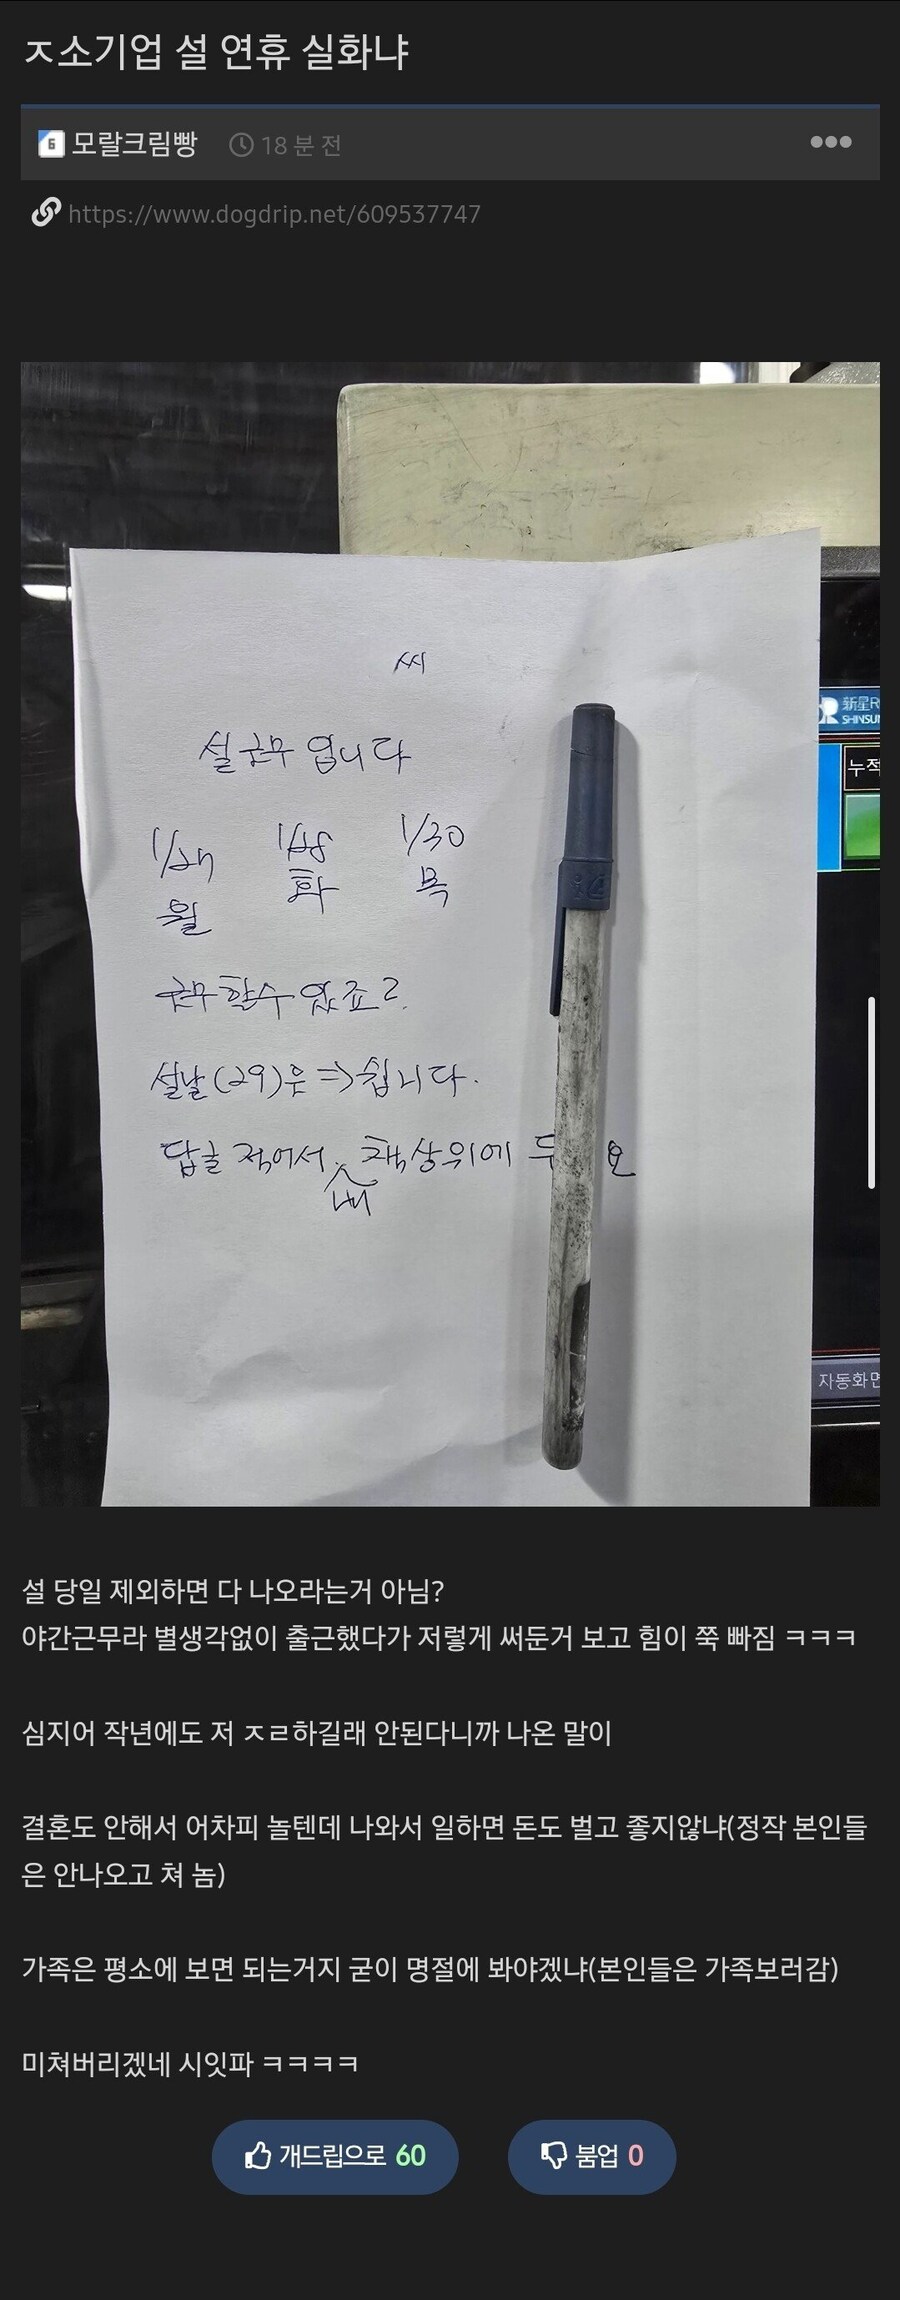 ㅈ소기업 설 연휴 실화냐
모랄크림빵 18 분 전
https://www.dogdrip.net/609537747
씨
설 근무 입니다
1/27 1/28 1/30
월 화 목
근무 할수 있죠?
설날(29)은 ⇒ 쉽니다.
답글 적어서 내 책상위에
新星R
SHINSUN
누적
자동화면
설 당일 제외하면 다 나오라는거 아님?
야간근무라 별생각없이 출근했다가 저렇게 써둔거 보고 힘이 쭉 빠짐 ㅋㅋㅋ
심지어 작년에도 저 ㅈㄹ하길래 안된다니까 나온 말이
결혼도 안해서 어차피 놀텐데 나와서 일하면 돈도 벌고 좋지않냐(정작 본인들
은 안나오고 쳐 놈)
가족은 평소에 보면 되는거지 굳이 명절에 봐야겠냐(본인들은 가족보러감)
미쳐버리겠네 시잇파 ㅋㅋㅋㅋ
개드립으로 60 붐업 0